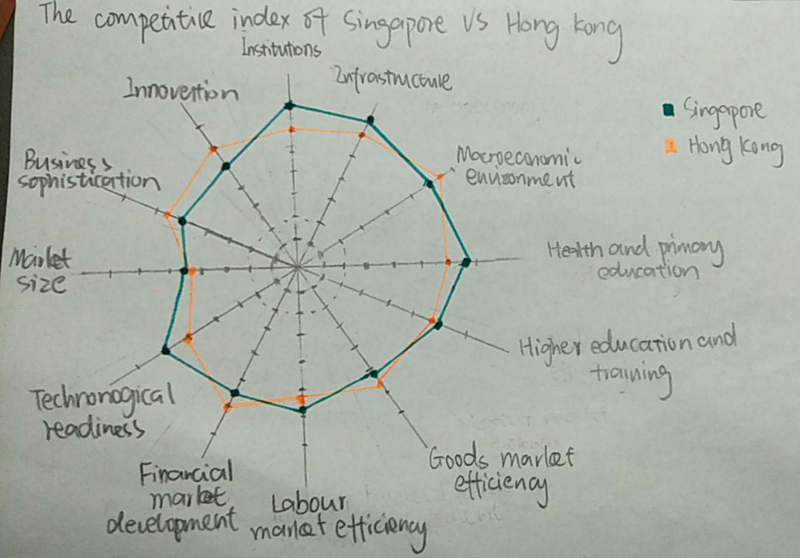 The competitice index of Singapore VS Hong Kong
Institutions
Infrastructure
Innovertion
Singapore
Hong Kong
Macroeconomic
enuironment
Business
sophistication
Health and primary
education
Market
size
Higher education and
training
Technonogical
readiness
Goods market
efficiency
Financial
market
development
Labour
market efficiency